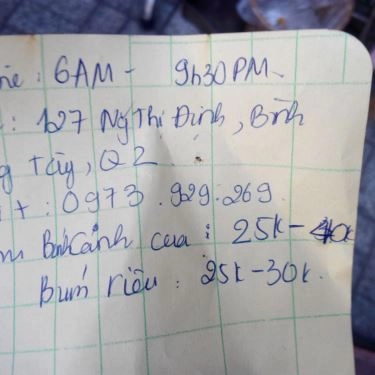 me : 6AM - 9h30PM
: 127 Ng Thị Định, Bình
g Tây, Q2
t : 0973.929.269
m Bánh Canh cua : 25k - 40k
Bún riêu : 25k - 30k.